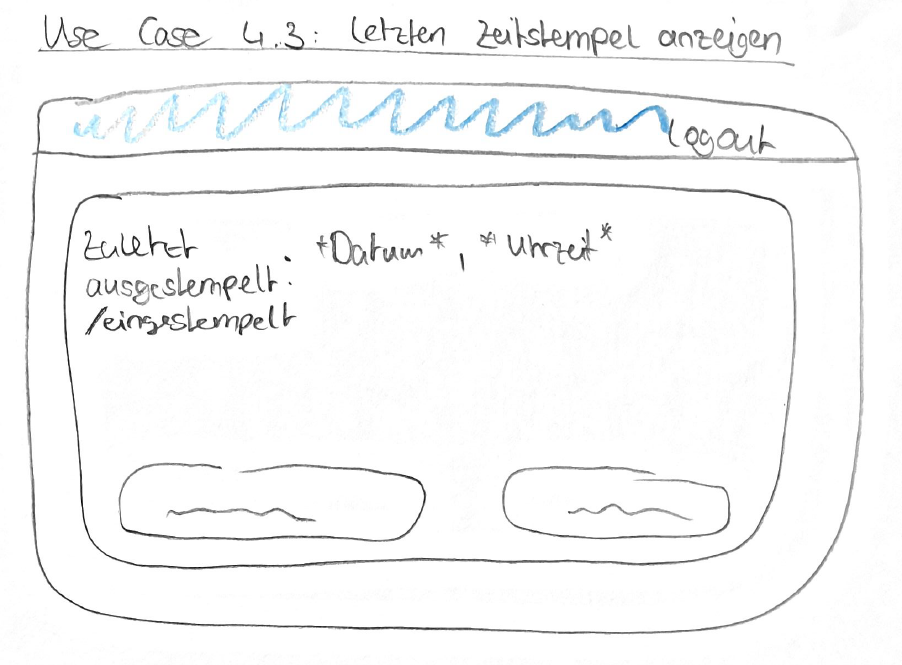 Use Case 4.3: letzten Zeitstempel anzeigen
Logout
Zuletzt
ausgestempelt: *Datum*, *Uhrzeit*
/eingestempelt